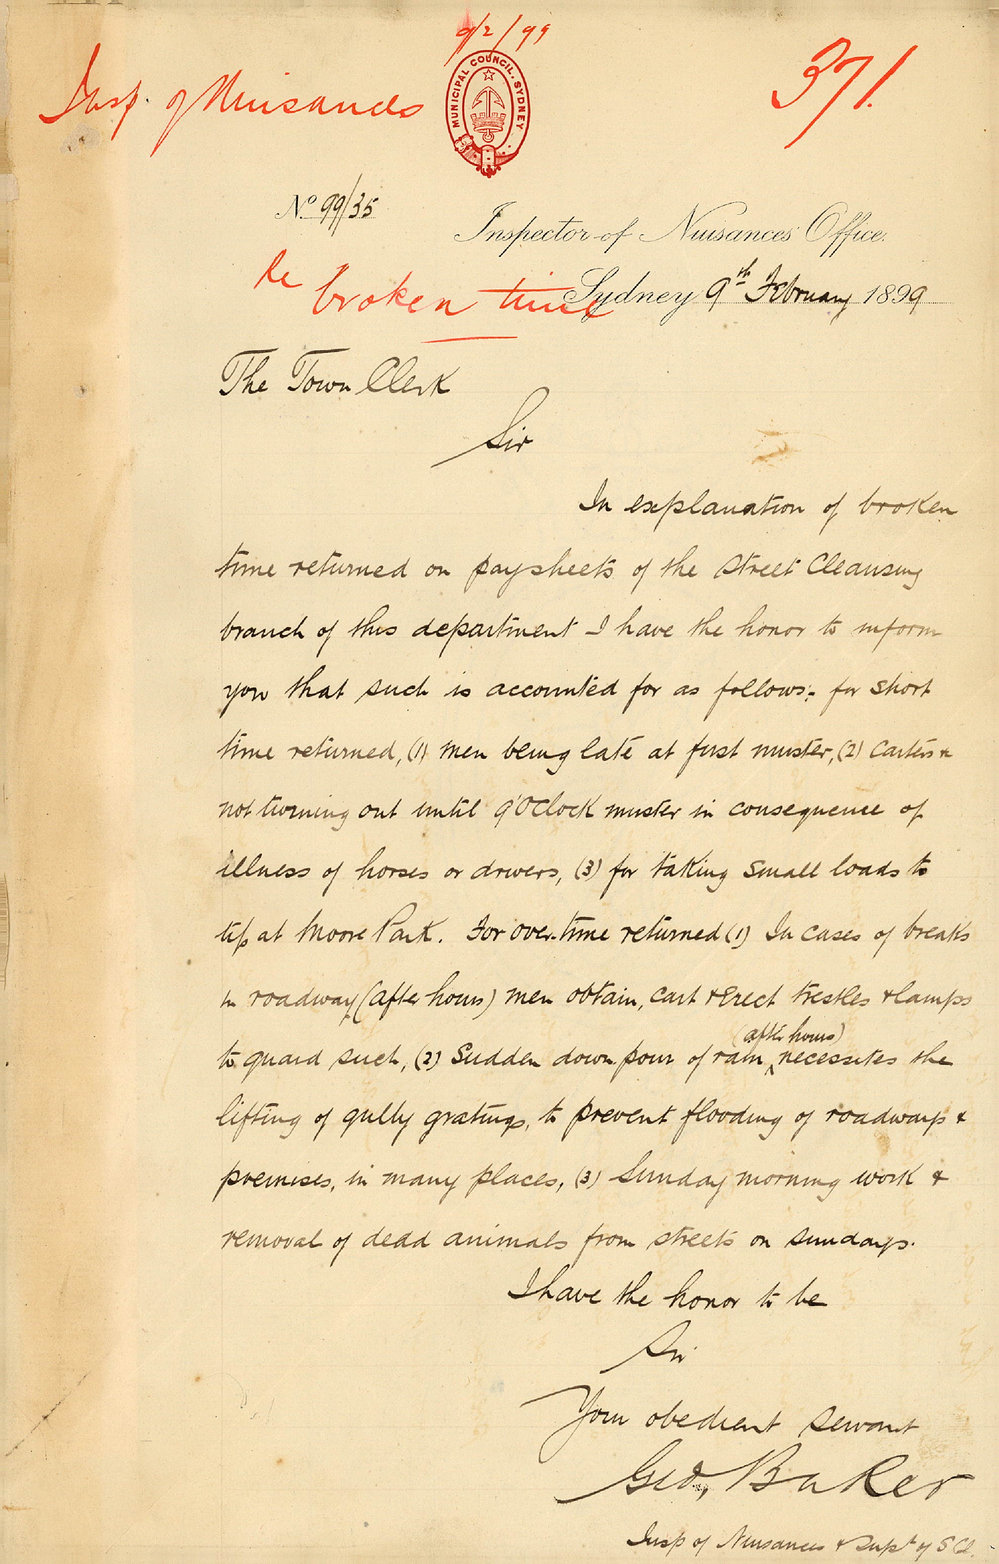 9/2/99
Insp. of Nuisances
371.
MUNICIPAL COUNCIL. SYDNEY
No 99/35
Inspector of Nuisances Office.
Re broken time
Sydney 9th February 1899
The Town Clerk
Sir
In explanation of broken
time returned on paysheets of the Street Cleansing
branch of this department I have the honor to inform
you that such is accounted for as follows:- for short
time returned, (1) men being late at first muster, (2) carters
not turning out until 9 'O'Clock muster in consequence of
illness of horses or drivers, (3) for taking small loads to
tip at Moore Park. For over-time returned (1) In cases of breaks
in roadway (after hours) men obtain, cart & Erect trestles & lamps
(after hours)
to guard such, (2) Sudden down pour of rain necessites the
lifting of gully gratings, to prevent flooding of roadways &
premises, in many places, (3) Sunday morning work &
removal of dead animals from streets on Sundays.
I have the honor to be
Sir
Your obedient servant
Geo. Baker
Insp of Nuisances & Supt of S Cl.